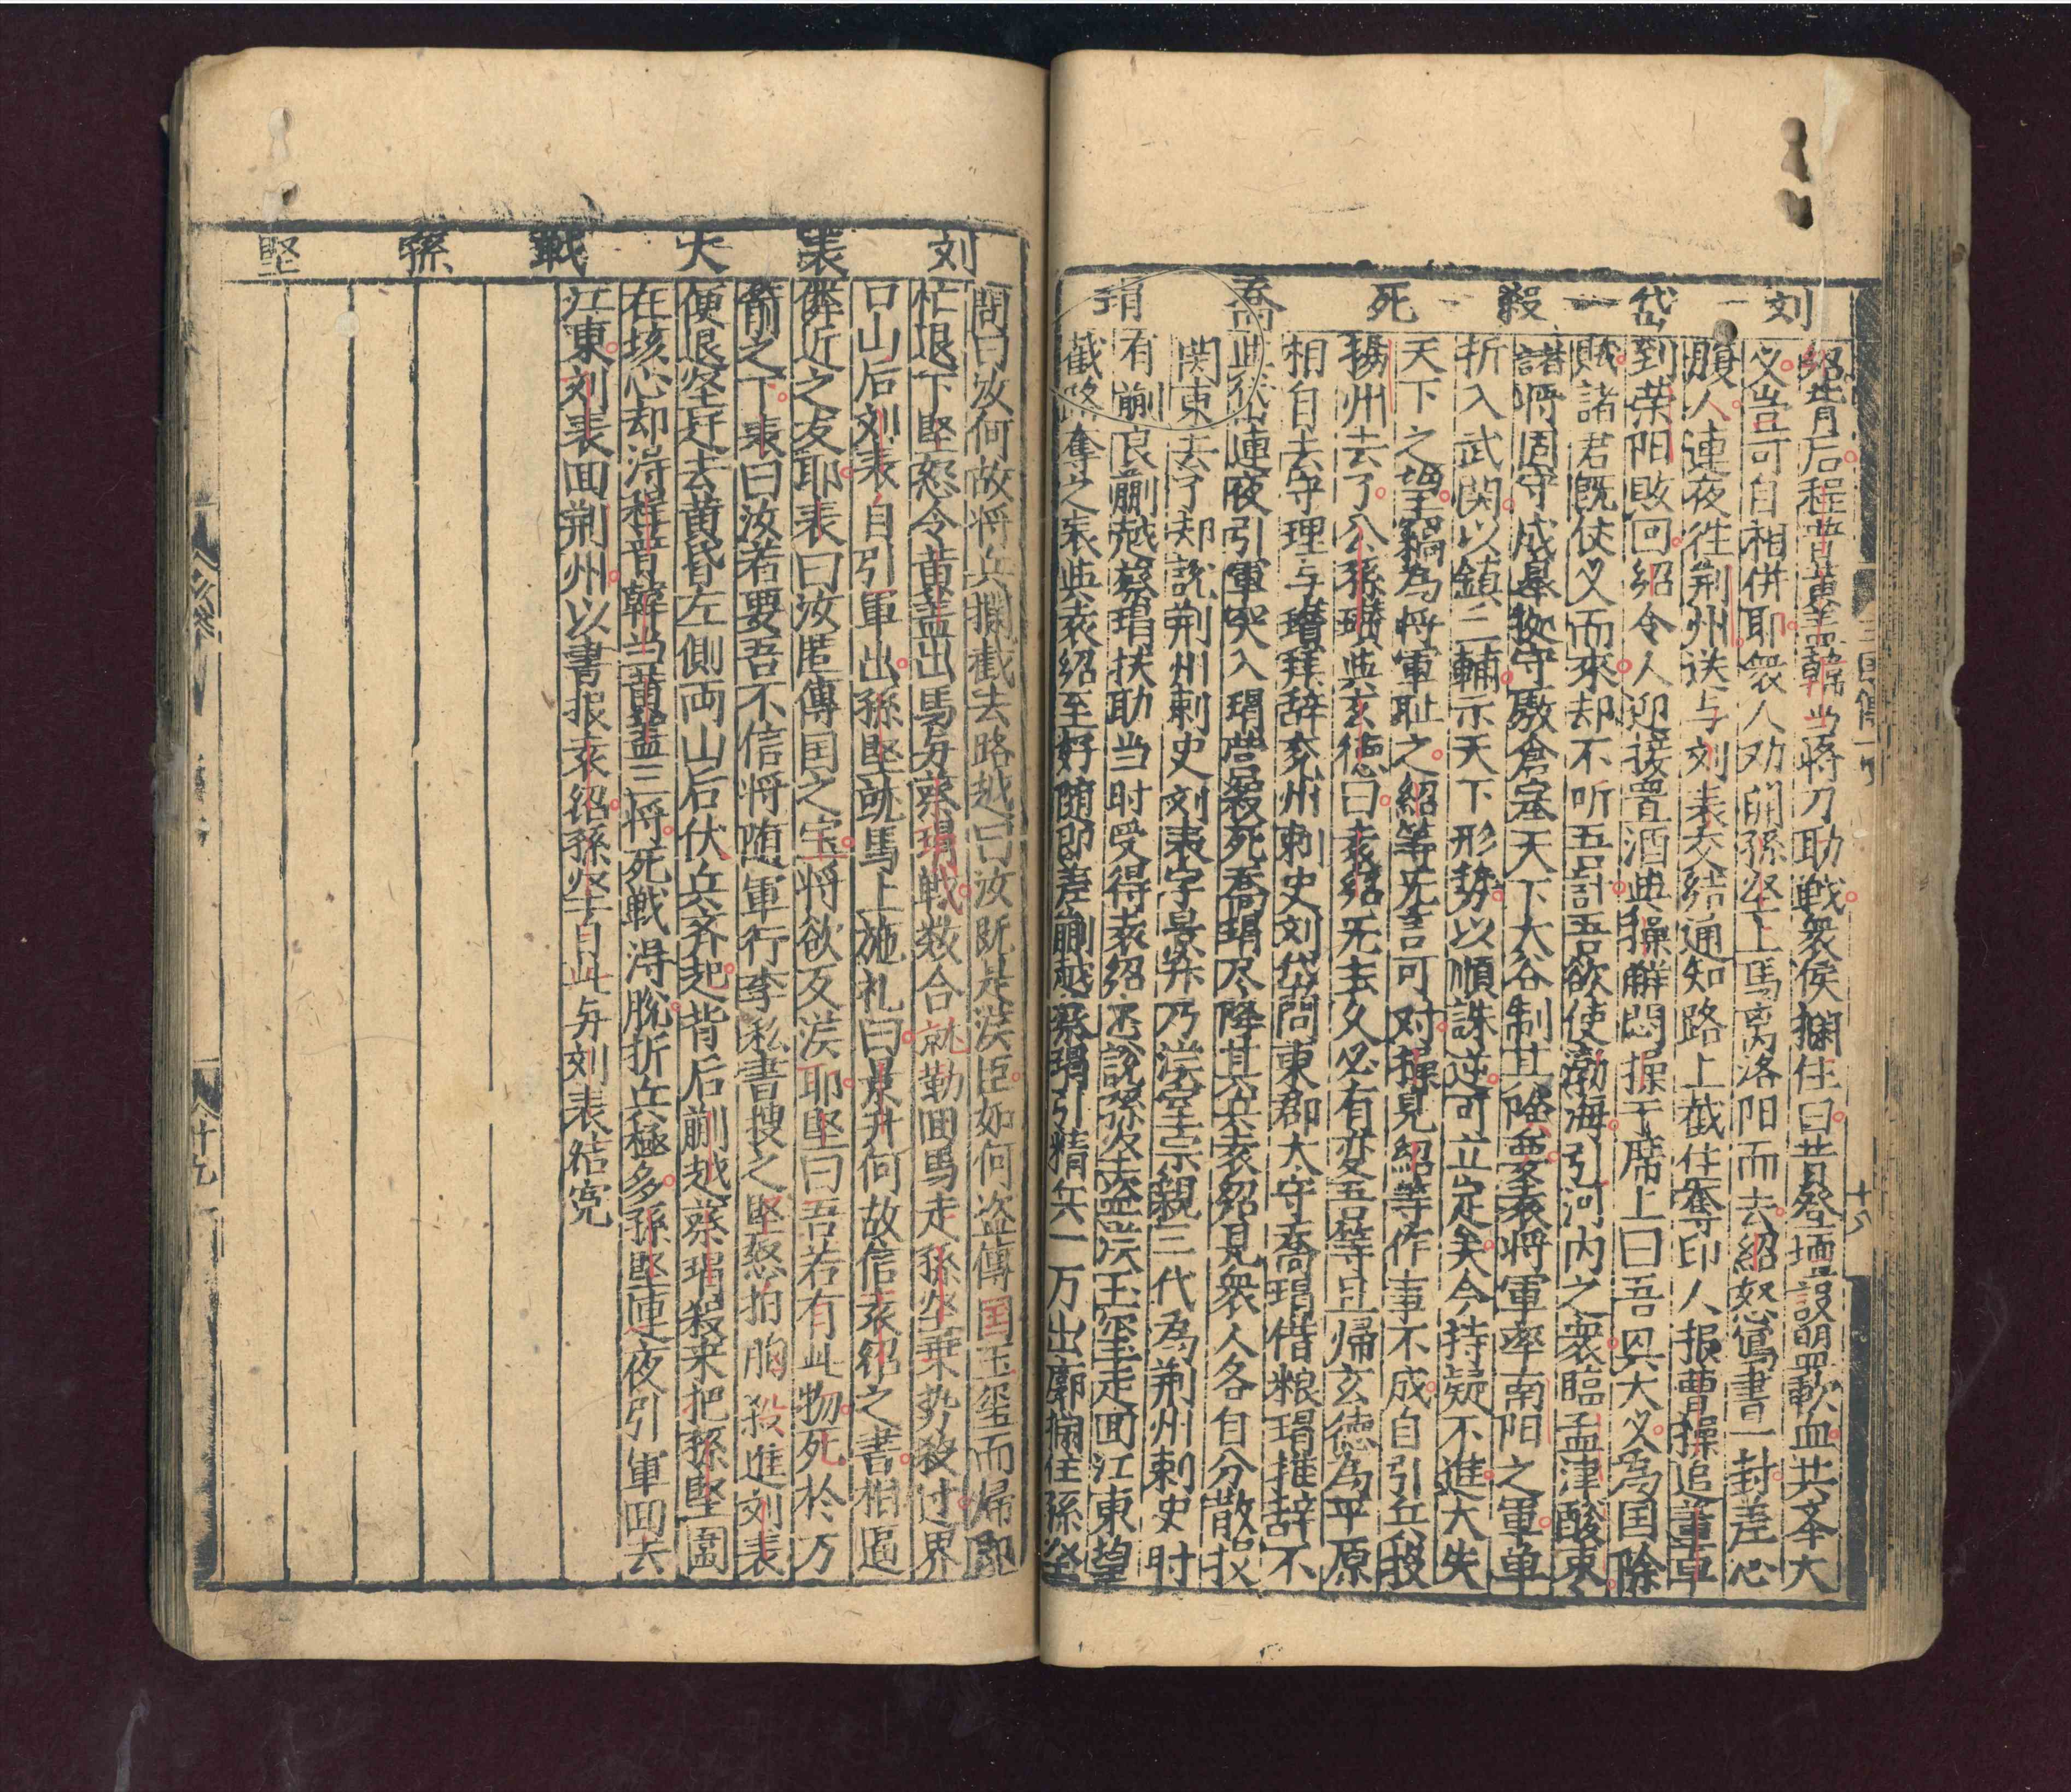 刘岱殺死喬瑁
紹背后程普黄盖韓当蒋刀助戦衆侯攔住曰昔登壇設盟歃血共奉大
义豈可自相併耶衆人劝開孫坚上馬离洛阳而去紹怒寫書一封差心
腹人連夜徃荆州送与刘表交結通知路上截住奪印人报曹操追董卓
到荣阳敗回紹令人迎接置酒与操觧悶操于席上曰吾兴大义爲国除
贼諸君既仗义而來却不听吾計吾欲使渤海引河内之衆臨孟津酸枣
諸將固守成皋據守敖倉塞天下大谷制其险要袁将軍率南阳之軍单
折入武関以鎮三輔示天下形势以順誅逆可立定矣今持疑不進大失
天下之望竊为将軍耻之紹等旡言可对操見紹等作事不成自引兵投
揚州去了公孫瓚與玄德曰袁紹旡去久必有变吾等且帰玄德為平原
相自去守理与瓚拜辞兖州刺史刘岱問東郡太守喬瑁借粮瑁推辞不
岱連夜引軍突入瑁营殺死喬瑁尽降其兵袁紹見衆人各自分散投
関東去了却說荆州剌史刘表字景升乃漢室宗親三代為荆州刺史时
有蒯良蒯越蔡瑁扶助当时受得袁紹書說孫坚盗漢玉璽走回江東望
截路奪之表與袁紹至好随即差蒯越蔡瑁引精兵一万出廓攔住孫坚
刘表大戰孫堅
問曰汝何故将兵攔截去路越曰汝旣是漢臣如何盗傳国玉璽而帰即
忙退下堅怒令黄盖出馬与蔡瑁戦数合就勒回馬走孫坚乗势殺过界
口山后刘表自引軍出孫堅就馬上施礼曰景升何故信袁紹之書相逼
鄰近之友耶表曰汝匿傳国之宝将欲反漢耶堅曰吾若有此物死於刀
箭之下表曰汝若要吾不信将随軍行李私書搜之堅怒拍胸殺進刘表
便退坚赶去黄昏左側両山后伏兵齐起背后蒯越蔡瑁殺来把孫堅圍
在垓心却得程普韓当黄盖三将死戦得脫折兵極多孫堅連夜引軍回去
江東刘表回荆州以書报袁紹孫坚自此与刘表结寃
三国傳一卷
十八
十九